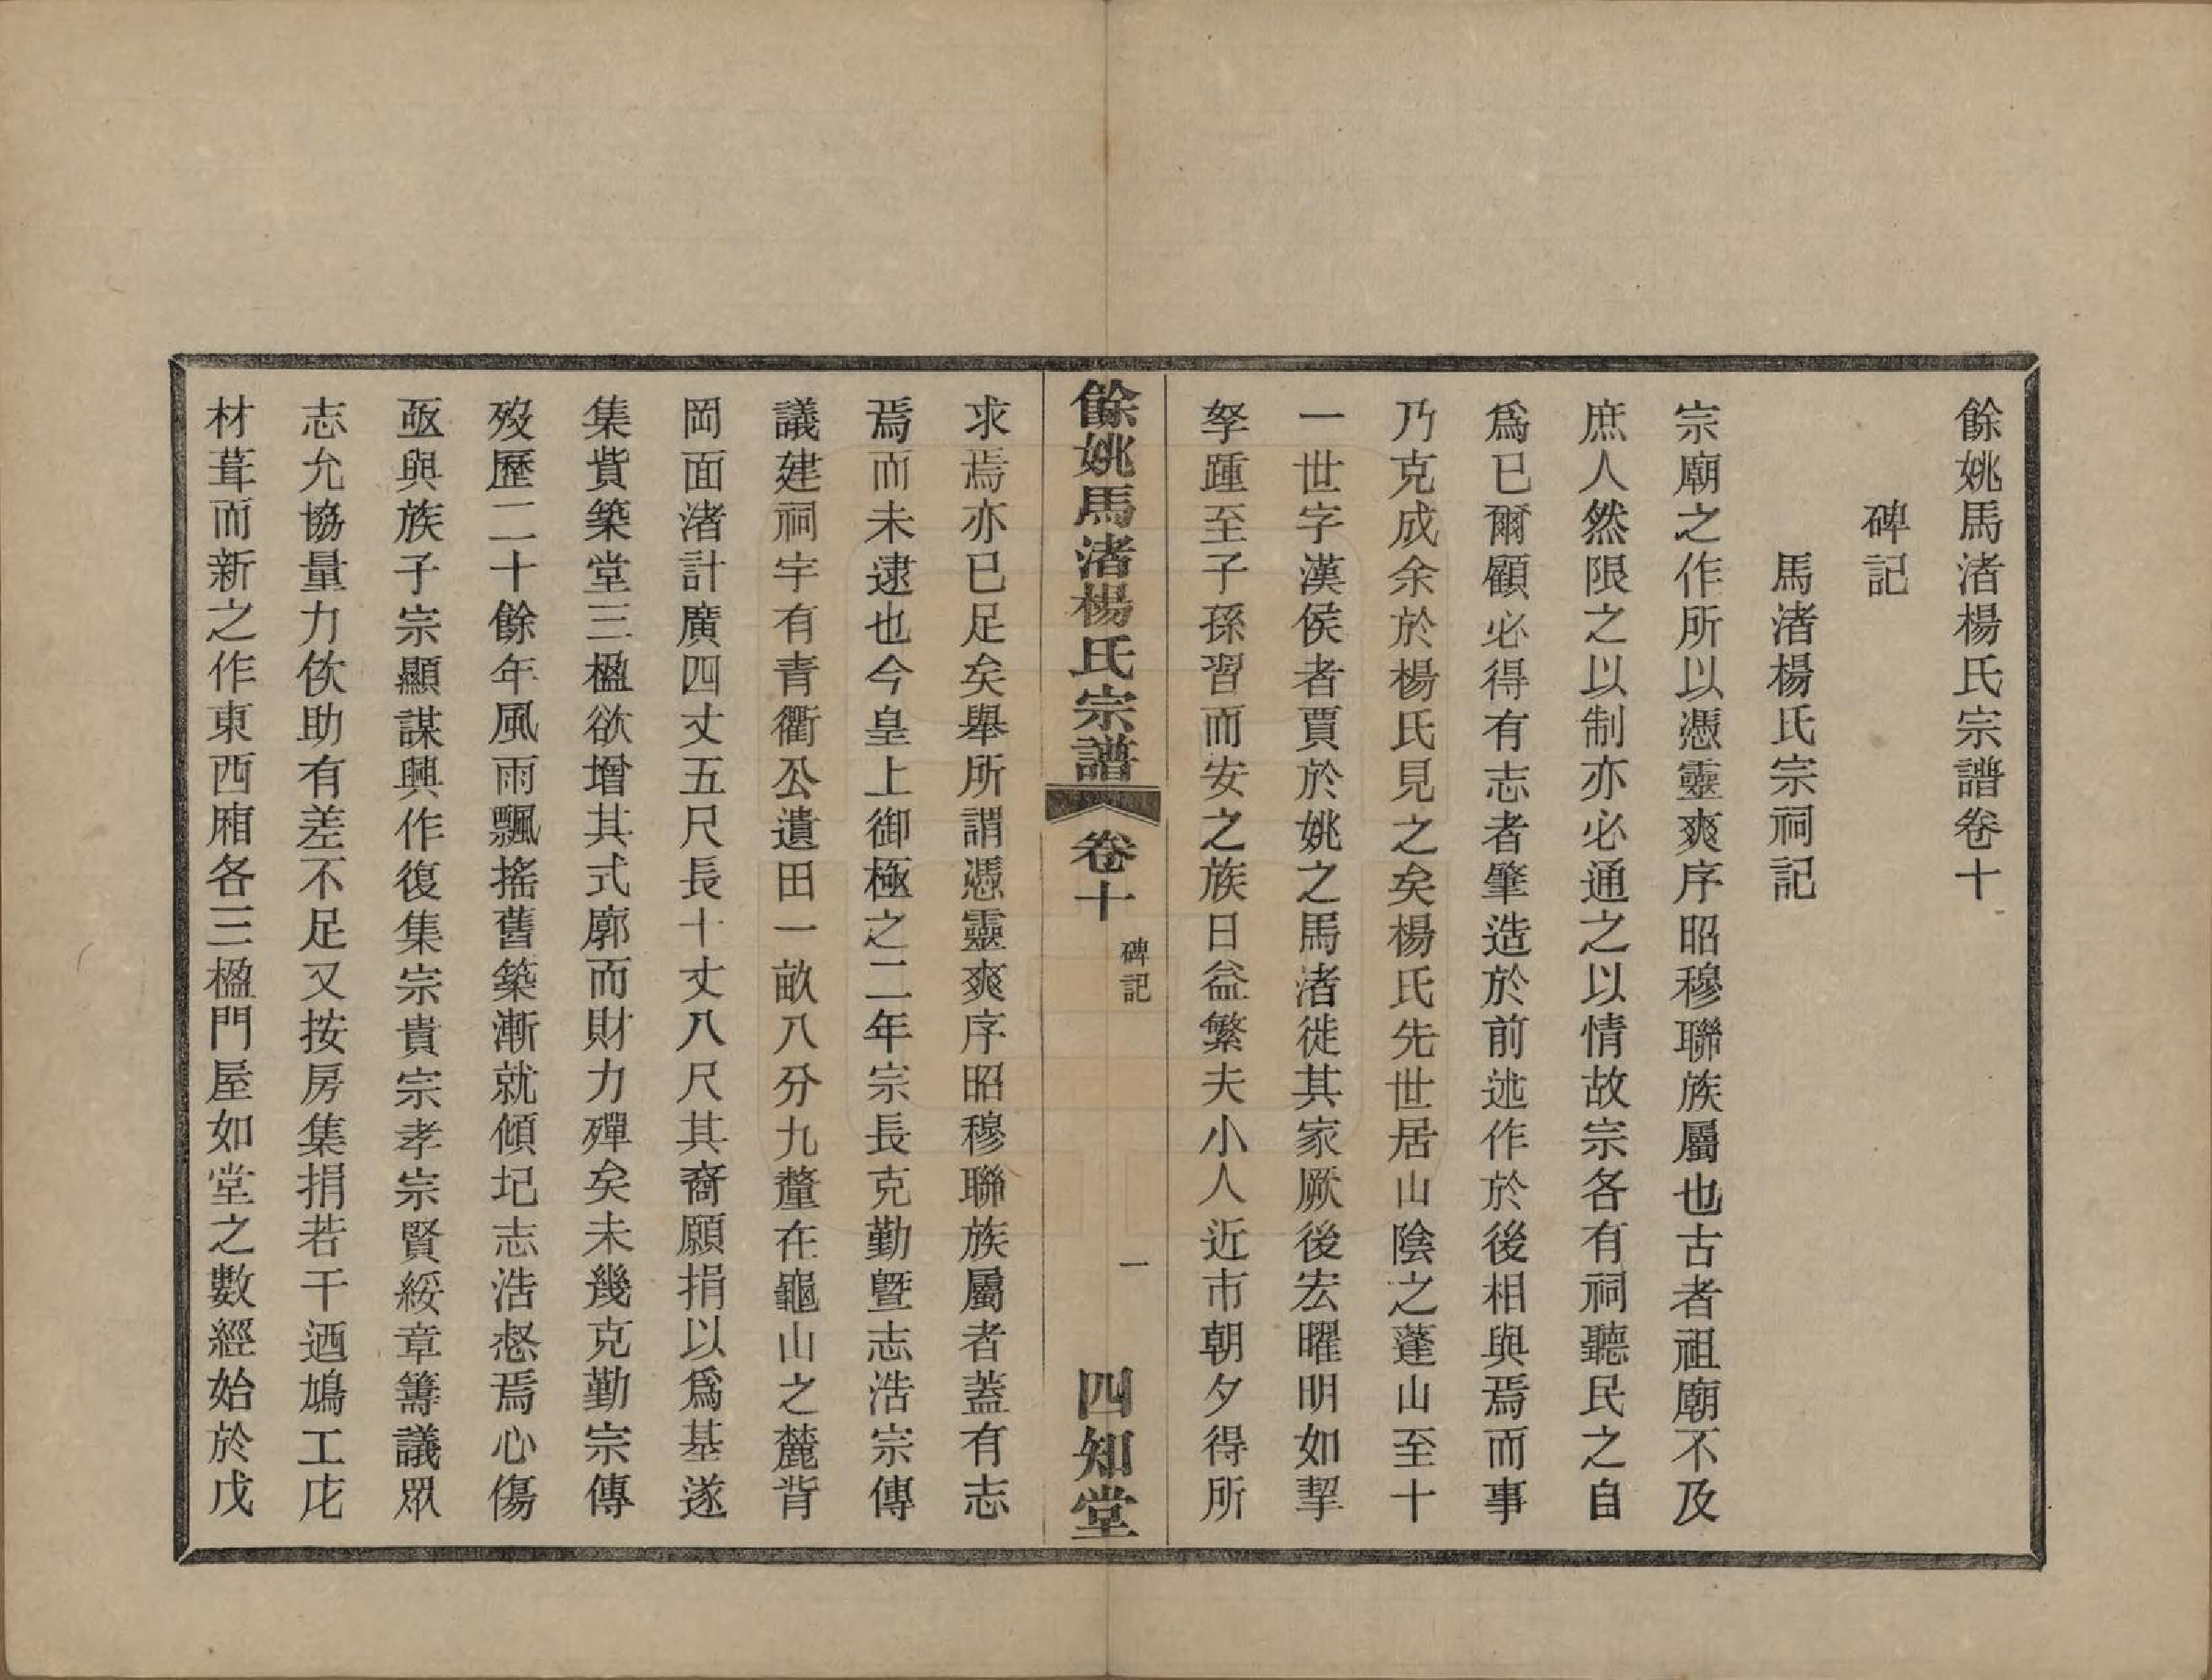 餘姚馬渚楊氏宗譜卷十
碑記
馬渚楊氏宗祠記
宗廟之作所以憑靈爽序昭穆聯族屬也古者祖廟不及
庶人然限之以制亦必通之以情故宗各有祠聽民之自
爲已爾顧必得有志者肇造於前述作於後相與焉而事
乃克成余於楊氏見之矣楊氏先世居山陰之蓬山至十
一世字漢侯者賈於姚之馬渚徙其家厥後宏曜明如挈
孥踵至子孫習而安之族日益繁夫小人近市朝夕得所
餘姚馬渚楊氏宗譜
卷十
碑記
一
四知堂
求焉亦已足矣舉所謂憑靈爽序昭穆聯族屬者蓋有志
焉而未逮也今皇上御極之二年宗長克勤曁志浩宗傳
議建祠宇有青衢公遺田一畝八分九釐在龜山之麓背
岡面渚計廣四丈五尺長十丈八尺其裔願捐以爲基遂
集貲築堂三楹欲增其式廓而財力殫矣未幾克勤宗傳
歿歷二十餘年風雨飄搖舊築漸就傾圮志浩惄焉心傷
亟與族子宗顯謀興作復集宗貴宗孝宗賢綏章籌議眾
志允協量力佽助有差不足又按房集捐若干迺鳩工庀
材葺而新之作東西廂各三楹門屋如堂之數經始於戊